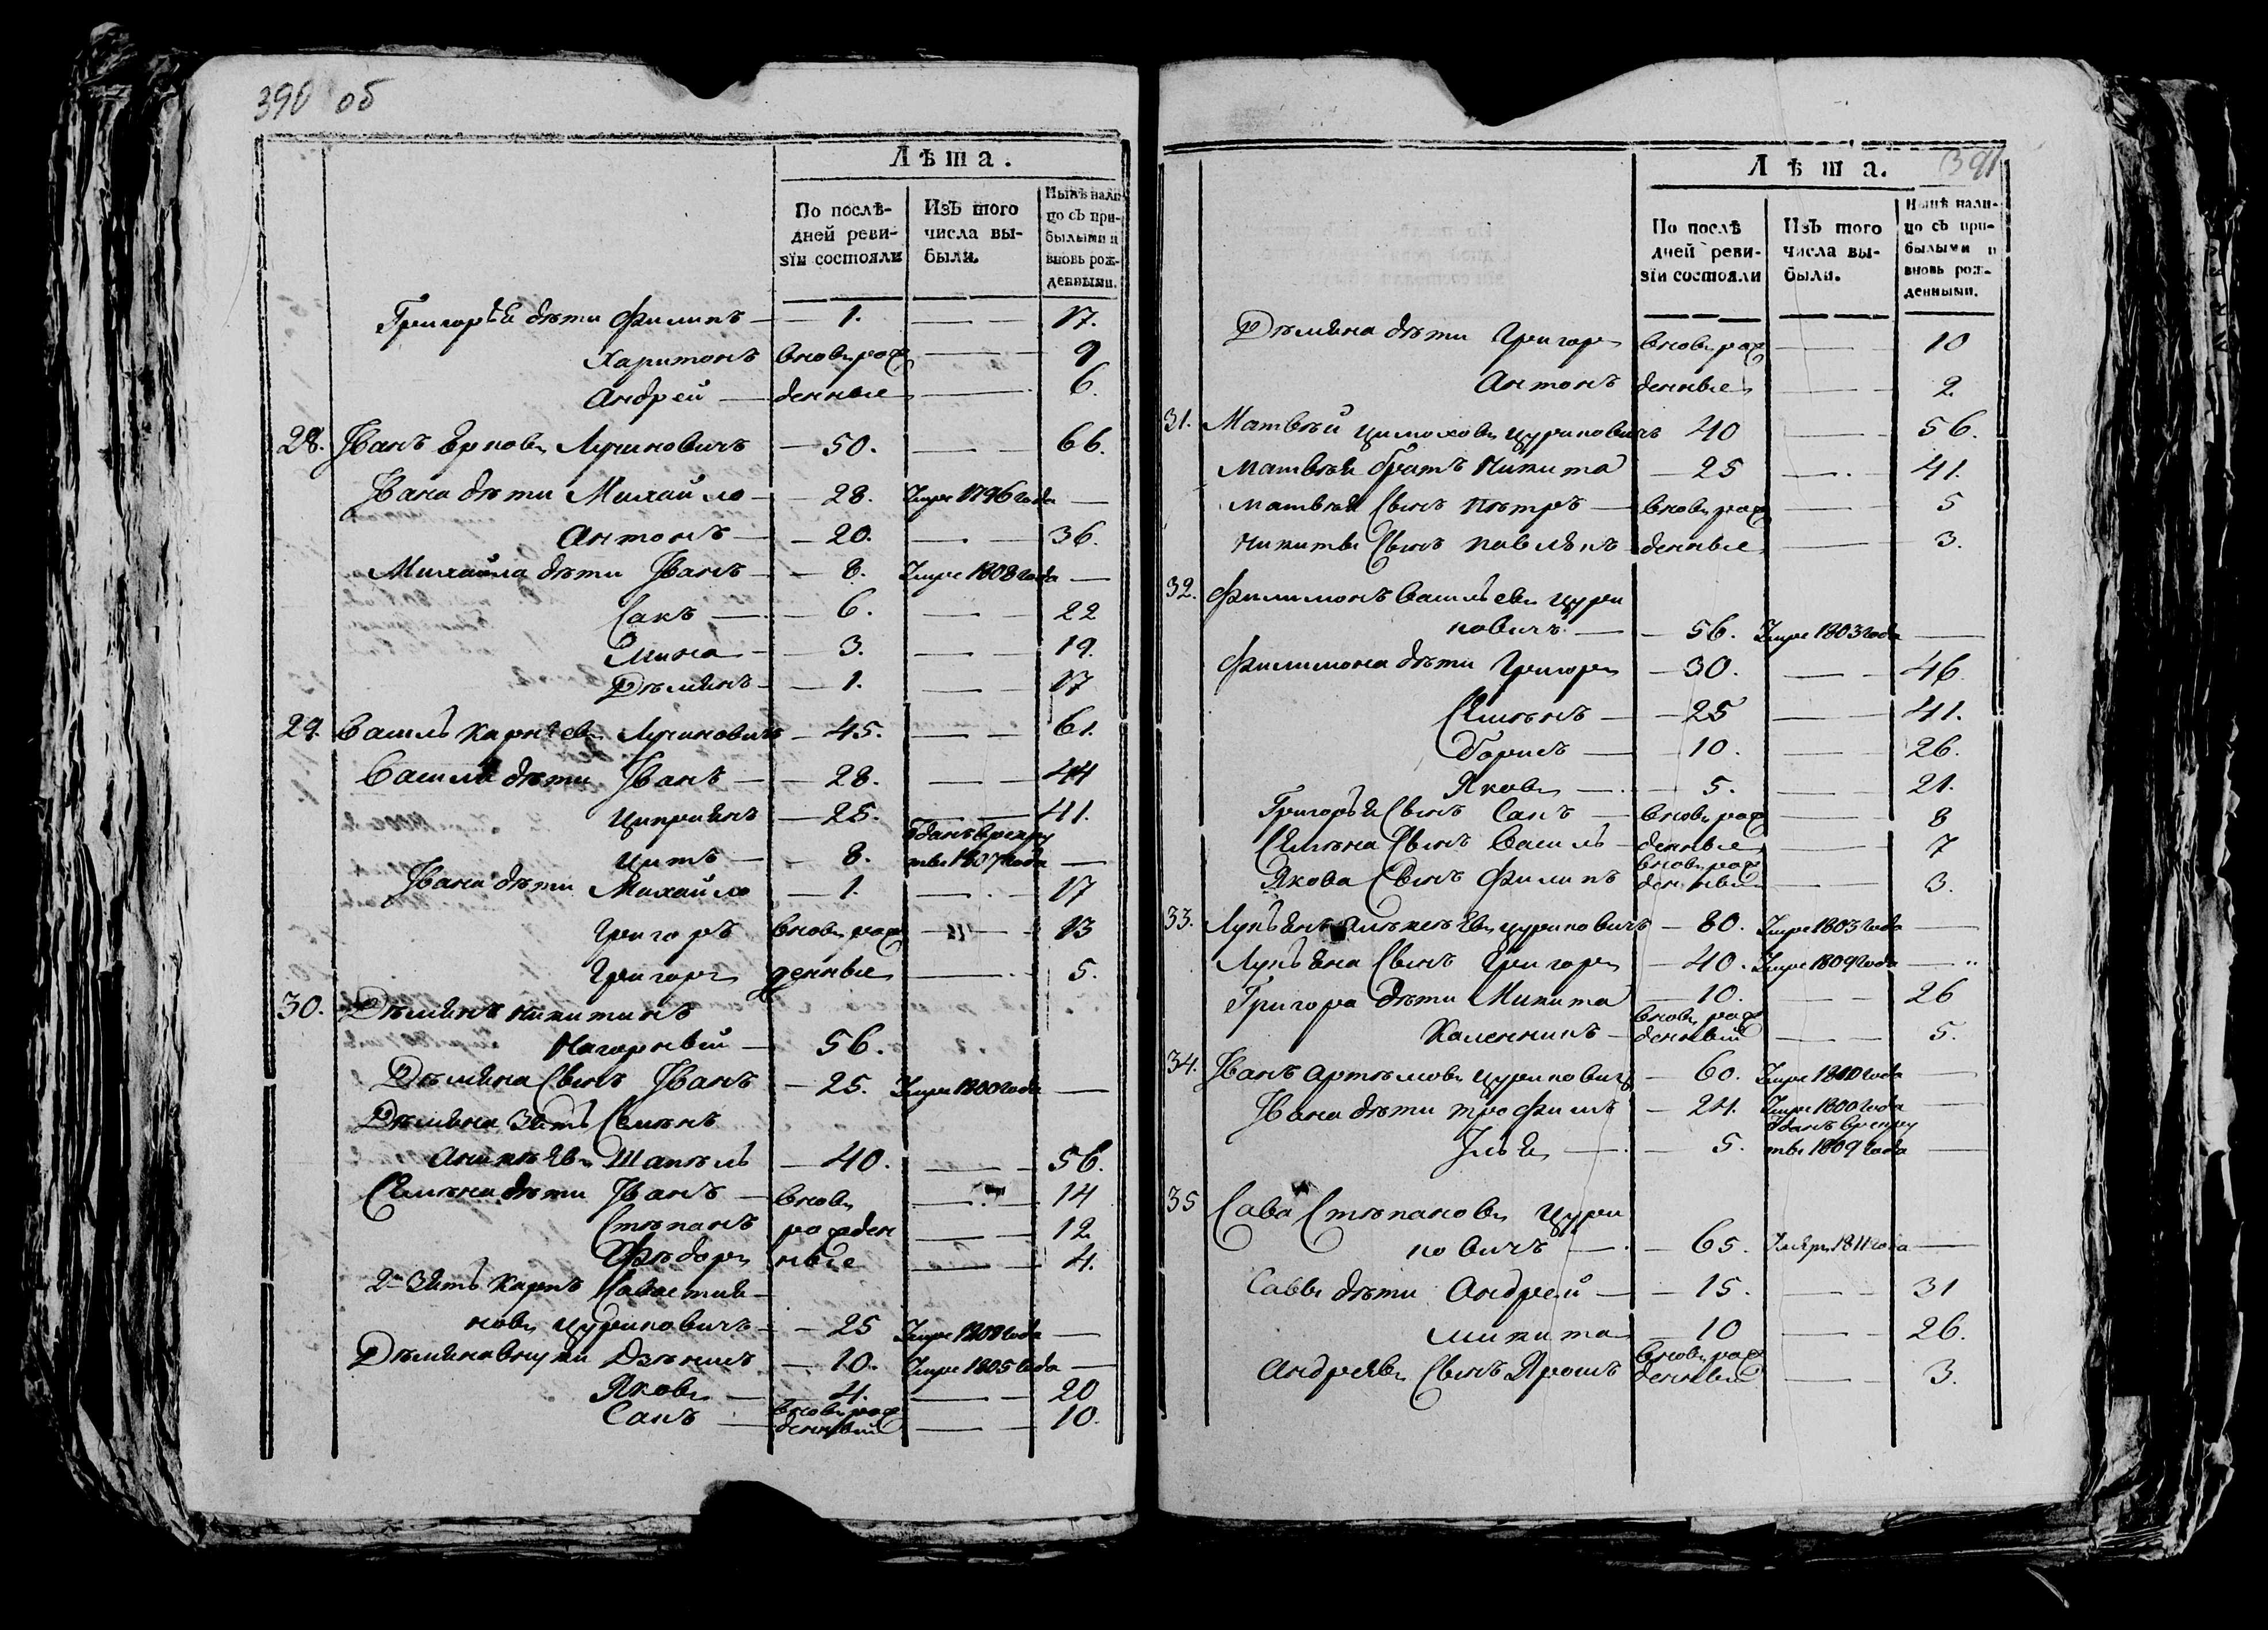 390 об
Лѣта.
По послѣ-
дней реви-
зіи состояли
Изъ того
числа вы-
были.
Нынѣ нали-
цо съ при-
былыми и
вновь рож-
денными.
Григорія дѣти Филипъ — 1. — 17.
Харитонъ вновь рож — 9
Андрей — денные — 6.
28. Иванъ Лучиновичъ — 50. — 66.
Ивана дѣти Михайло — 28. Умре 1796 года —
Антонъ — 20. — 36.
Михайла дѣти Иванъ — 8. Умре 1808 года —
Сакъ — 6. — 22
Мина — 3. — 19.
Дѣмянъ — 1. — 17
29. Василь Карнѣевъ Лучиновичъ — 45. — 61.
Василя дѣти Иванъ — 28. — 44
Циприянъ — 25. — 41.
Титъ — 8. Зданъ врекру
ты 1807 года —
Ивана дѣти Михайло — 1. — 17
Григоръ вновь рож — 13
Григорь денные — 5.
30. Дѣмянъ Никитинъ
Нагорный — 56.
Дѣмяна Сынъ Иванъ — 25. Умре 1800 года —
Дѣмяна Зять Семѣнъ
Шапѣль — 40. — 56.
Семѣна дѣти Иванъ — вновь — 14
Стѣпанъ рожден — 12
Фѣдоръ ные — 4.
2й Зять Карпъ Савастия-
новъ Цуриповичъ — 25 Умре 1808 года —
Дѣмяна внуки Дзѣнисъ — 10. Умре 1805 года —
Яковъ — 4. — 20
Сакъ — вновь рож
денный — 10.
391
Лѣта.
По послѣ
дней реви-
зіи состояли
Изъ того
числа вы-
были.
Нынѣ нали-
цо съ при-
былыми и
вновь рож-
денными.
Дѣмяна дѣти Григорь вновь рож — 10
Антонъ денные — 2
31. Матвѣй Цимоховъ Цуриповичъ 40 — 56.
Матвѣя братъ Никита — 25 — 41.
Матвѣя Сынъ Пѣтръ — вновь рож — 5
Никиты Сынъ Павлѣкъ денные — 3.
32. Филимонъ Васильевъ Цури
повичъ — 56. Умре 1803 года —
Филимона дѣти Григорь — 30. — 46.
Семѣнъ — 25 — 41.
Борисъ — 10. — 26.
Яковъ — 5. — 21.
Григорья Сынъ Сакъ — вновь рож — 8
Семѣна Сынъ Василь — денные — 7
Якова Сынъ Филипъ вновь рож
денный — 3.
33. Лукъянъ Цуриповичъ — 80. Умре 1803 года —
Лукъяна Сынъ Григорь — 40. Умре 1809 года —
Григора дѣти Микита — 10. — 26
Каленникъ — вновь рож
денный — 5.
34. Иванъ Артѣмовъ Цуриповичъ — 60. Умре 1810 года —
Ивана дѣти Трофимъ — 24. Умре 1800 года —
Илья — 5. Зданъ врекру
ты 1809 года —
35 Сава Стѣпановъ Цури
повичъ — 65. Умеръ 1811 года —
Саввы дѣти Андрей — 15. — 31
Микита — 10 — 26.
Андреявъ Сынъ Ярошъ вновь рож
денный — 3.